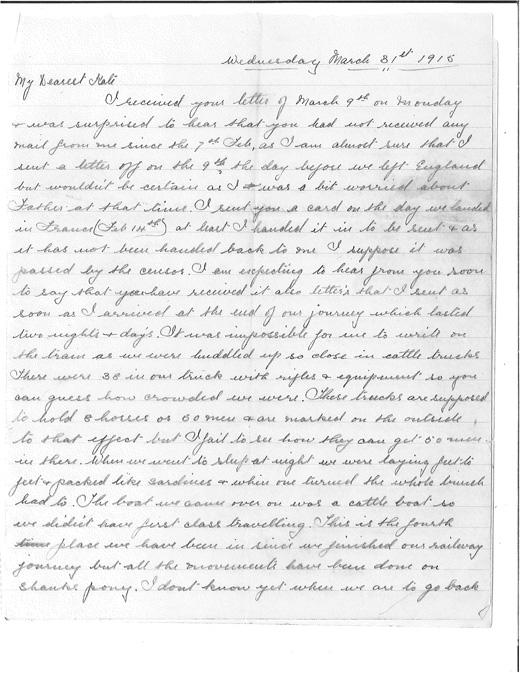 Wednesday March 31st 1915
My Dearest Kate
I received your letter of March 9th on Monday
& was surprised to hear that you had not received any
mail from me since the 7th Feb, as I am almost sure that I
sent a letter off on the 9th the day before we left England
but wouldn't be certain as I was a bit worried about
Father at that time. I sent you a card on the day we landed
in France (Feb 14th) at least I handed it in to be sent & as
it has not been handed back to me I suppose it was
passed by the censor. I am expecting to hear from you soon
to say that you have received it also letter's that I sent as
soon as I arrived at the end of our journey which lasted
two nights & days. It was impossible for me to write on
the train as we were huddled up so close in cattle trucks
There were 38 in our truck with rifles & equipment so you
can guess how crowded we were. These trucks are supposed
to hold 8 horses or 50 men & are marked on the outside
to that effect but I fail to see how they can get 50 men
in there. When we went to sleep at night we were laying feet to
feet & packed like sardines & when one turned the whole bunch
had to. The boat we came over on was a cattle boat so
we didn't have first class travelling. This is the fourth
time place we have been in since we finished our railway
journey but all the movements have been done on
shanks pony. I dont know yet when we are to go back